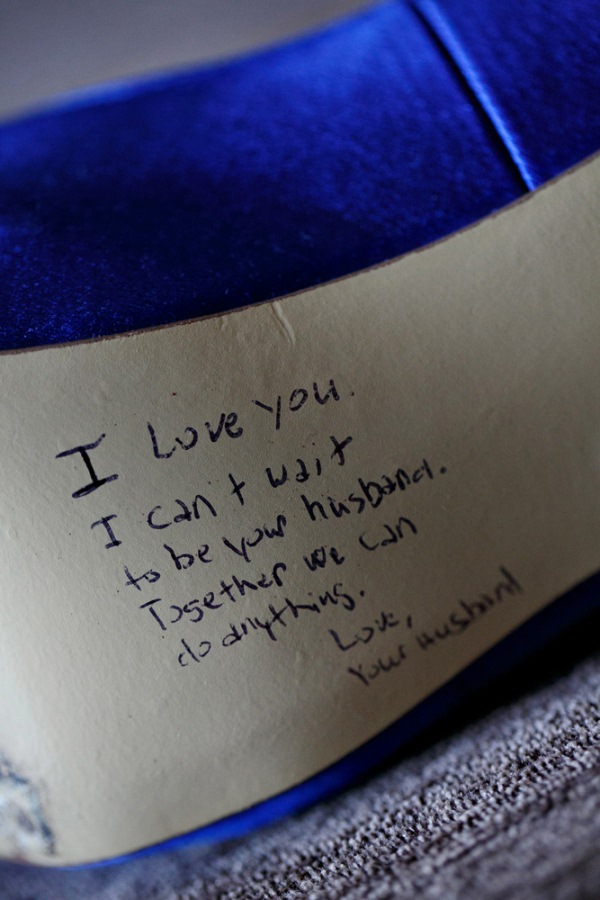 I Love you.
I can't wait
to be your husband.
Together we can
do anything.
Love,
Your Husband